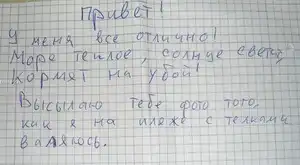 Привет!
У меня все отлично!
Море теплое, солнце светит,
Кормят на убой!
Высылаю тебе фото того,
как я на пляже с телками
валяюсь.